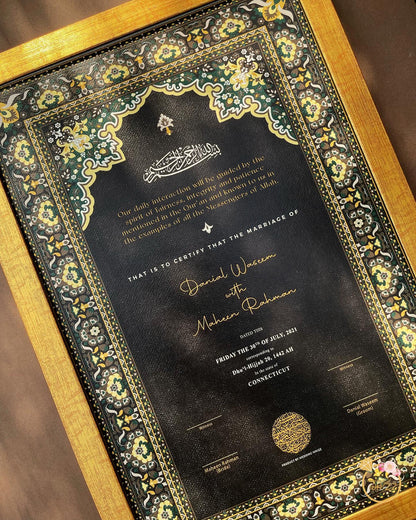 بسم الله الرحمن الرحيم
Our daily interaction will be guided by the
spirit of fairness, integrity and patience
mentioned in the Qur'an and known to us in
the examples of all the Messengers of Allah.
THAT IS TO CERTIFY THAT THE MARRIAGE OF
Danial Waseem
with
Maheen Rahman
DATED THIS
FRIDAY THE 30TH OF JULY, 2021
corresponding to
Dhu'l-Hijjah 20, 1442 AH
In the state of
CONNECTICUT
Witness
Witness
Maheen Rahman
(Bride)
Danial Waseem
(Groom)